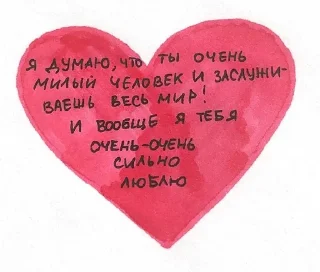 Я ДУМАЮ, ЧТО ТЫ ОЧЕНЬ
МИЛЫЙ ЧЕЛОВЕК И ЗАСЛУЖИ-
ВАЕШЬ ВЕСЬ МИР!
И ВООБЩЕ Я ТЕБЯ
ОЧЕНЬ-ОЧЕНЬ
СИЛЬНО
ЛЮБЛЮ